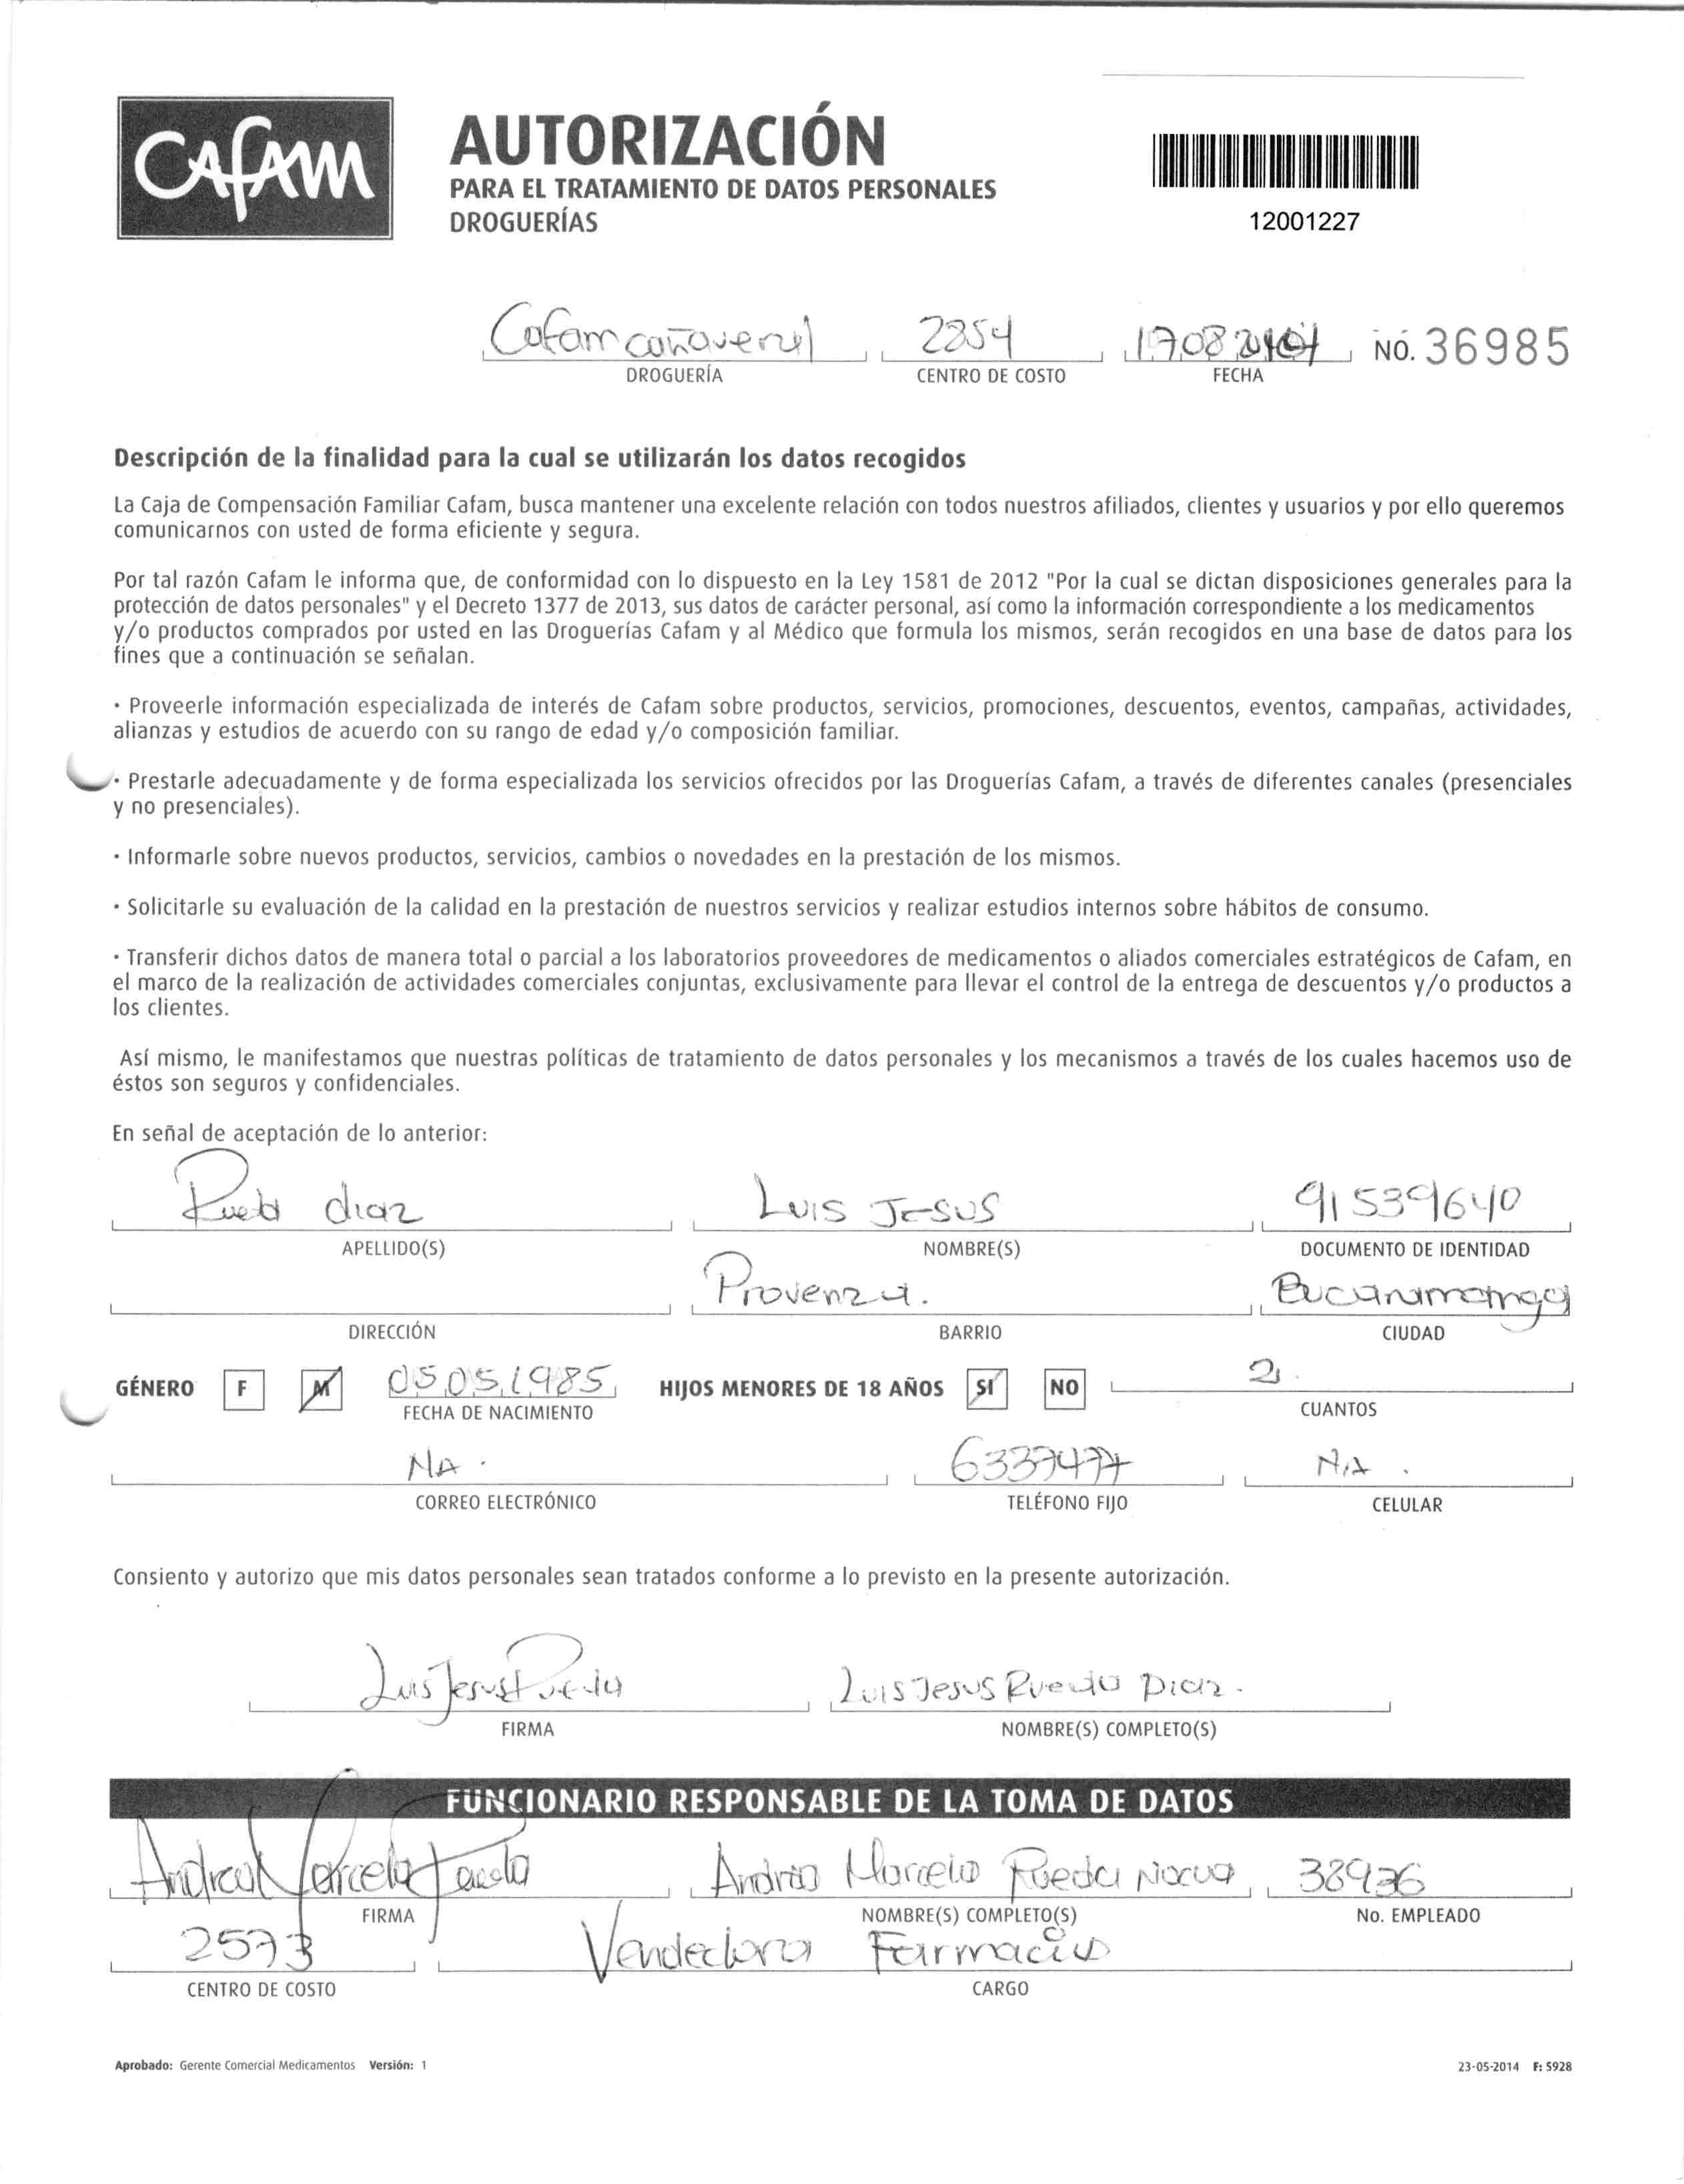 CAFAM
AUTORIZACIÓN
PARA EL TRATAMIENTO DE DATOS PERSONALES
DROGUERÍAS
12001227
Cafam cañaveral 2854 NO. 36985
DROGUERÍA CENTRO DE COSTO FECHA
Descripción de la finalidad para la cual se utilizarán los datos recogidos
La Caja de Compensación Familiar Cafam, busca mantener una excelente relación con todos nuestros afiliados, clientes y usuarios y por ello queremos
comunicarnos con usted de forma eficiente y segura.
Por tal razón Cafam le informa que, de conformidad con lo dispuesto en la Ley 1581 de 2012 "Por la cual se dictan disposiciones generales para la
protección de datos personales" y el Decreto 1377 de 2013, sus datos de carácter personal, así como la información correspondiente a los medicamentos
y/o productos comprados por usted en las Droguerías Cafam y al Médico que formula los mismos, serán recogidos en una base de datos para los
fines que a continuación se señalan.
· Proveerle información especializada de interés de Cafam sobre productos, servicios, promociones, descuentos, eventos, campañas, actividades,
alianzas y estudios de acuerdo con su rango de edad y/o composición familiar.
· Prestarle adecuadamente y de forma especializada los servicios ofrecidos por las Droguerías Cafam, a través de diferentes canales (presenciales
y no presenciales).
· Informarle sobre nuevos productos, servicios, cambios o novedades en la prestación de los mismos.
· Solicitarle su evaluación de la calidad en la prestación de nuestros servicios y realizar estudios internos sobre hábitos de consumo.
· Transferir dichos datos de manera total o parcial a los laboratorios proveedores de medicamentos o aliados comerciales estratégicos de Cafam, en
el marco de la realización de actividades comerciales conjuntas, exclusivamente para llevar el control de la entrega de descuentos y/o productos a
los clientes.
Así mismo, le manifestamos que nuestras políticas de tratamiento de datos personales y los mecanismos a través de los cuales hacemos uso de
éstos son seguros y confidenciales.
En señal de aceptación de lo anterior:
Rueda diaz Luis Jesus 91539640
APELLIDO(S) NOMBRE(S) DOCUMENTO DE IDENTIDAD
Provenza. Bucaramanga
DIRECCIÓN BARRIO CIUDAD
GÉNERO F M 05051985 HIJOS MENORES DE 18 AÑOS SI NO 2.
FECHA DE NACIMIENTO CUANTOS
NA. 6337477 N.A.
CORREO ELECTRÓNICO TELÉFONO FIJO CELULAR
Consiento y autorizo que mis datos personales sean tratados conforme a lo previsto en la presente autorización.
Luis Jesus Rueda Luis Jesus Rueda Diaz.
FIRMA NOMBRE(S) COMPLETO(S)
FUNCIONARIO RESPONSABLE DE LA TOMA DE DATOS
Andrea Marcela Rueda Andrea Marcela Rueda 38936
FIRMA NOMBRE(S) COMPLETO(S) No. EMPLEADO
2573 Vendedora Farmacia
CENTRO DE COSTO CARGO
Aprobado: Gerente Comercial Medicamentos Versión: 1 23-05-2014 F: 5928